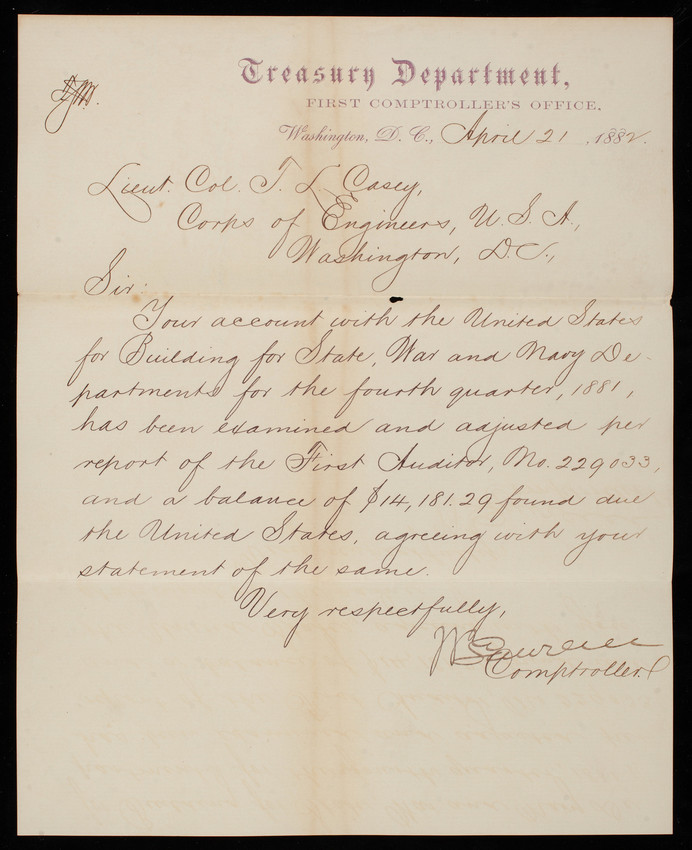 Treasury Department,
FIRST COMPTROLLER'S OFFICE,
Washington, D. C., April 21, 1882.
Lieut. Col. T. L. Casey,
Corps of Engineers, U. S. A.,
Washington, D.C.,
Sir:
Your account with the United States
for Building for State, War and Navy De-
partments for the fourth quarter, 1881,
has been examined and adjusted per
report of the First Auditor, No. 229033,
and a balance of $14,181.29 found due
the United States, agreeing with your
statement of the same.
Very respectfully,
W Lawrence
Comptroller.